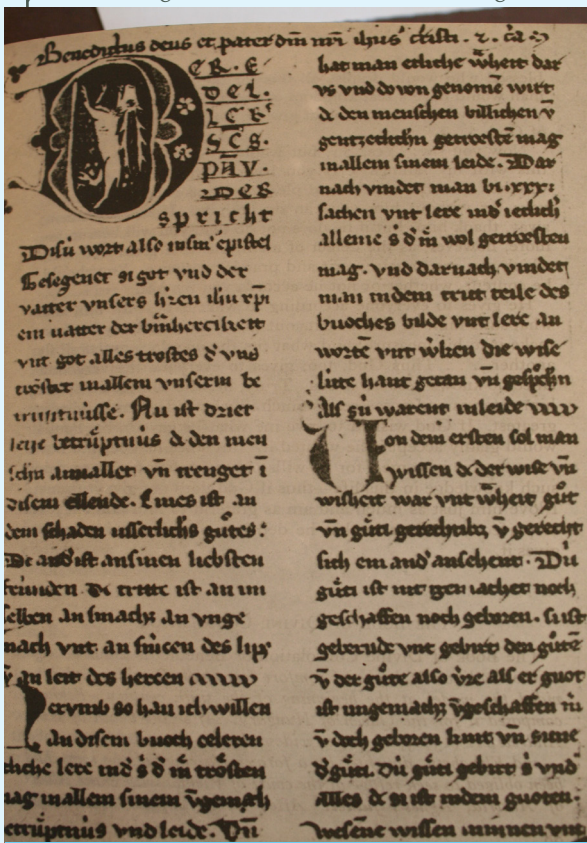 Benedictus deus et pater dm̄ nrī ihūs cristi . 
D ER . E
DEL .
LER
SC̄S .
PAV .
DER
spricht
Disú wort also in sin̄ epistel
Gesegenet si got vnd der
vatter vnsers h̓ren ihū xp̄i
ein uatter der bm̓herczikeit
vnt got alles trostes d̓ vns
trostet in allem vnserm be
trúptnússe . Nu ist drier
leie betrúptnús dc den men
schn̄ an vallet vn̄ trenget ī
disem ellende . Eines ist an
dem schaden usserliches gůtes :
Dc and̓ ist an sinen liebsten
frúnden dc tritte ist an im
selben an smacht an vnge
mach vnt an smerzen des libz
v̄ an leit des herzen
Dervmb so han ich willen
an disem buoch ze leren
etliche lere
mag in allem sinem vgemach
betrúptnús vnd leide . Vn̄
hat man etliche w̓heit dar
vs vnd do von genomē wirt
dc den menschen billichen v̄
genczeclichn̄ getroestē mag
in allem sinem leide . Dar
nach vindet man bi . xxx :
sachen vnt lere
alleine wol getroesten
mag . vnd darnach vindet
man in dem trit teile des
buoches bilde vnt lere an
wortē vnt w̓ken die wise
lúte hant getan vn̄ gesp̓chn̄
Als sú warent in leide
Von dem ersten sol man
wissen dc der wise vn̄
wisheit war vnt w̓heit gůt
vn̄ gůti gerecht v̄ gerecht
sich ein and̓ ansehent . Dú
gůti ist nit gemachet noch
geschaffen noch geboren . si ist
geberude vnt gebirt den gůtē
v̄ der gůte also v̓re als er guot
ist vngemacht v̄geschaffen
v̄ doch geboren kint vn̄ sune
d̓ gůti . Dú gůti gebirt vnd
alles dc si ist in dem guoten :
wesene wissen minnen vnt